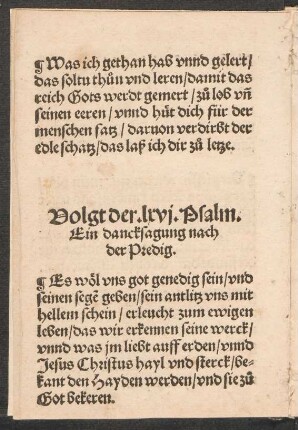 ¶Was ich gethan hab vnnd gelert/
das soltu thůn vnd leren/damit das
reich Gots werdt gemert/zů lob vn̄
seinen eeren/vnnd hüt dich für der
menschen satz/daruon verdirbt der
edle schatz/das laß ich dir zů letze.
Volgt der.lxvj.Psalm.
Ein dancksagung nach
der Predig.
¶Es wöl vns got genedig sein/vnd
seinen segē geben/sein antlitz vns mit
hellem schein/erleucht zum ewigen
leben/das wir erkennen seine werck/
vnnd was jm liebt auff erden/vnnd
Jesus Christus hayl vnd sterck/be-
kant den Hayden werden/vnd sie zů
Got bekeren.